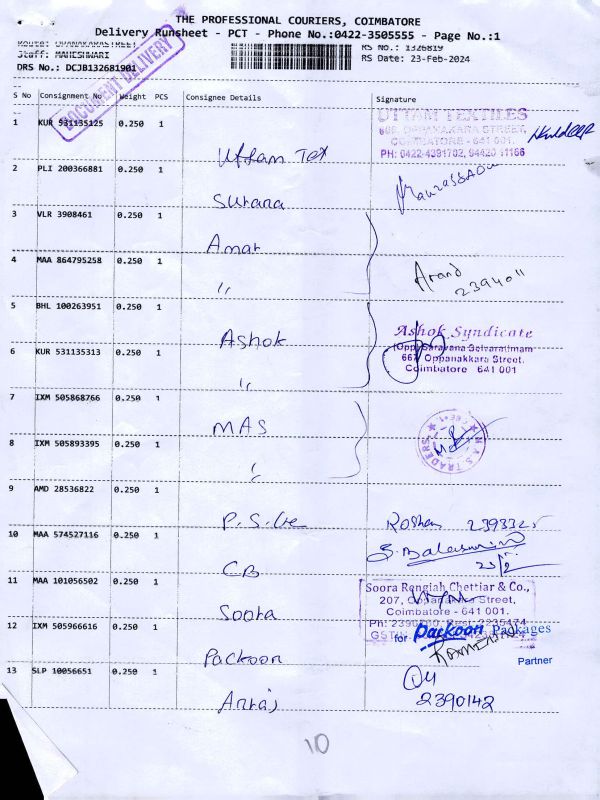 THE PROFESSIONAL COURIERS, COIMBATORE
Delivery Runsheet - PCT - Phone No.:0422-3505555 - Page No.:1
Staff: MAHESHWARI
RS No.: 1326819
DRS No.: DCJB132681901
RS Date: 23-Feb-2024
DOCUMENT DELIVERY
S No Consignment No Weight PCS Consignee Details Signature
1 KUR 531135125 0.250 1
UTTAM TEXTILES
OPPANAKARA STREET,
COIMBATORE - 641 001.
Kuldeep
Uttam Tex
2 PLI 200366881 0.250 1
Surana
3 VLR 3908461 0.250 1
Amar
4 MAA 864795258 0.250 1
Anand
2394011
"
5 BHL 100263951 0.250 1
Ashok
Ashok Syndicate
(Opp) Saravana Selvarathnam
667 Oppanakkara Street.
Coimbatore 641 001
6 KUR 531135313 0.250 1
"
7 IXM 505868766 0.250 1
MAS
M.A.S TRADERS
8 IXM 505893395 0.250 1
9 AMD 28536822 0.250 1
Roshan
10 MAA 574527116 0.250 1
CB
11 MAA 101056502 0.250 1
Soora Rengiah Chettiar & Co.,
207, Oppanakara Street,
Coimbatore - 641 001.
Soora
12 IXM 505966616 0.250 1
for Packoon Packages
Partner
Packoon
13 SLP 10056651 0.250 1
2390142
10